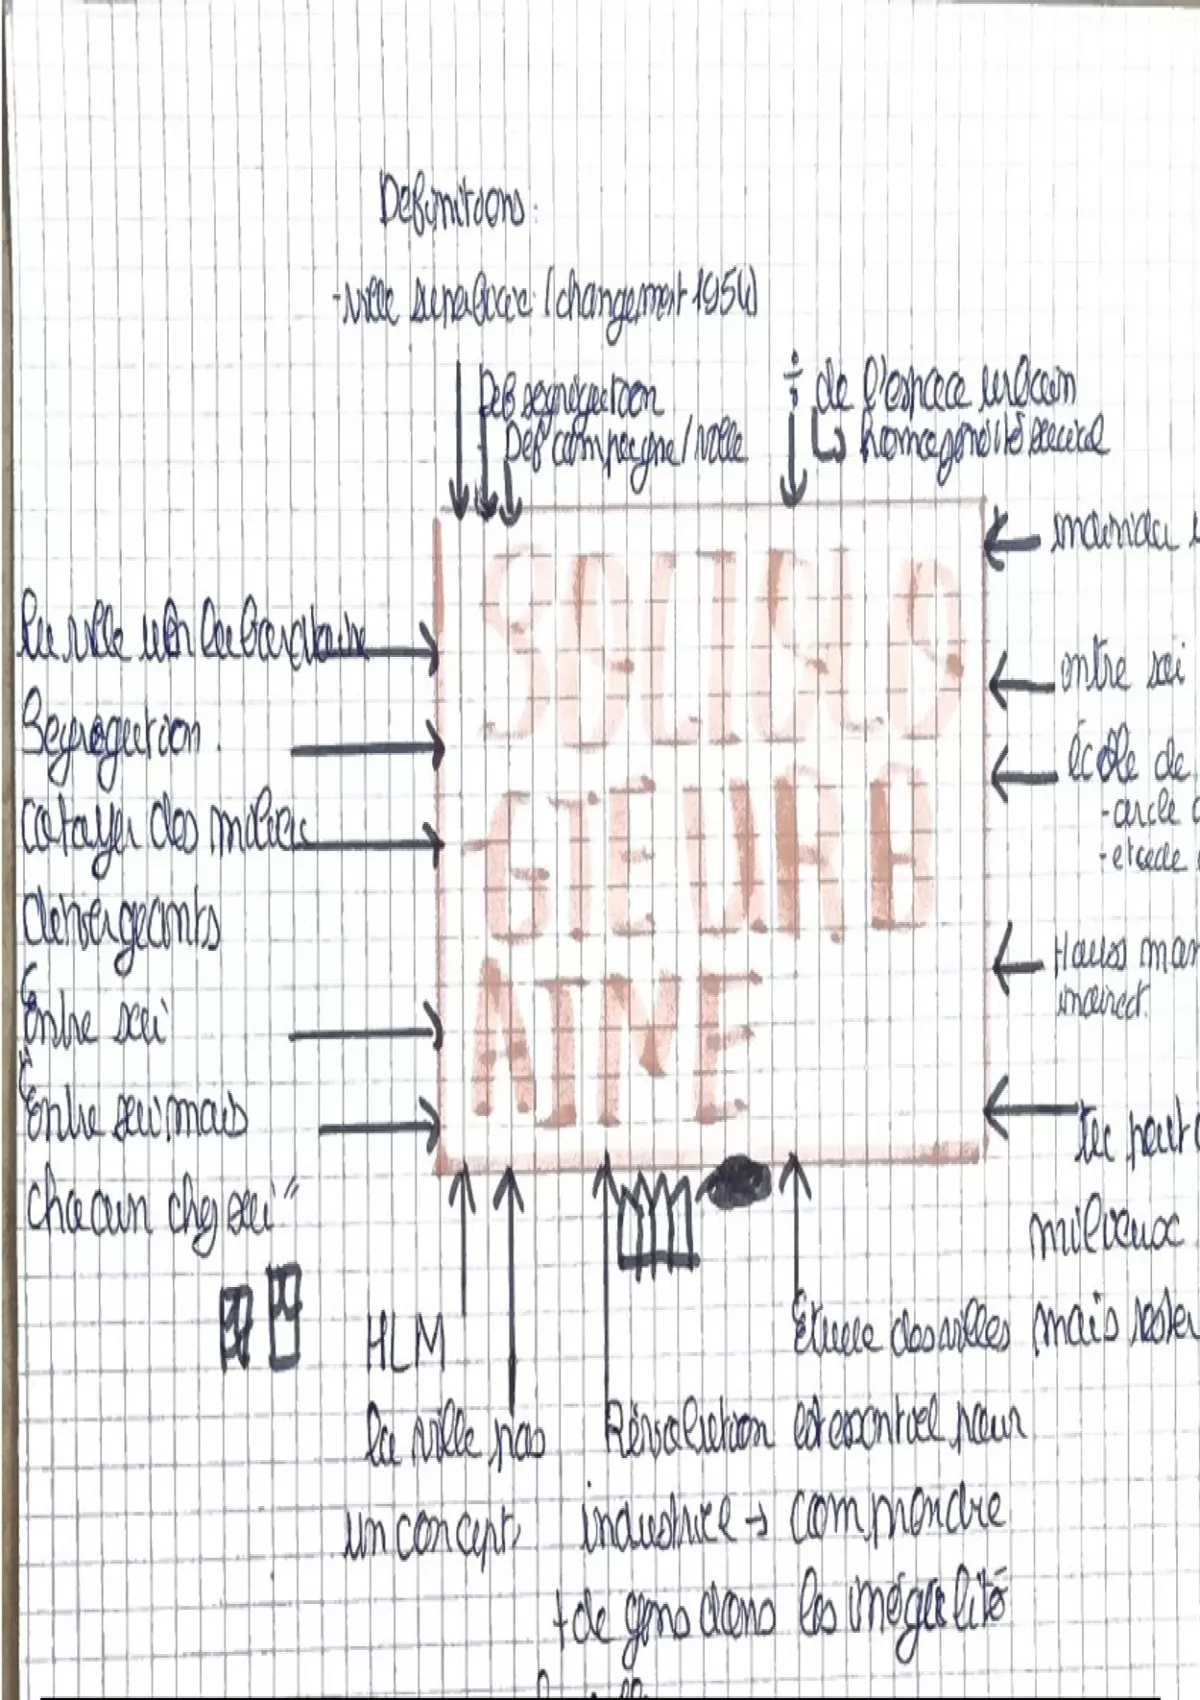 Définitions:
-ville (changement 1954)
Def ségrégation
Def campagne/ville
÷ de l'espace urbain
↳ homogénéité social
SOCIOLO
GIE URB
AINE
la ville un laboratoire
Ségrégation
cotoyer des milieu
divergeants
Entre soi
"Entre soi mais
chacun chez soi"
entre soi
école de
-cercle
Haussman
indirect
milieux
mais rester
HLM
la ville pas
un concept
Révolution
industriel →
+ de gens dans
Etude des villes
est essentiel pour
comprendre
les inégalité